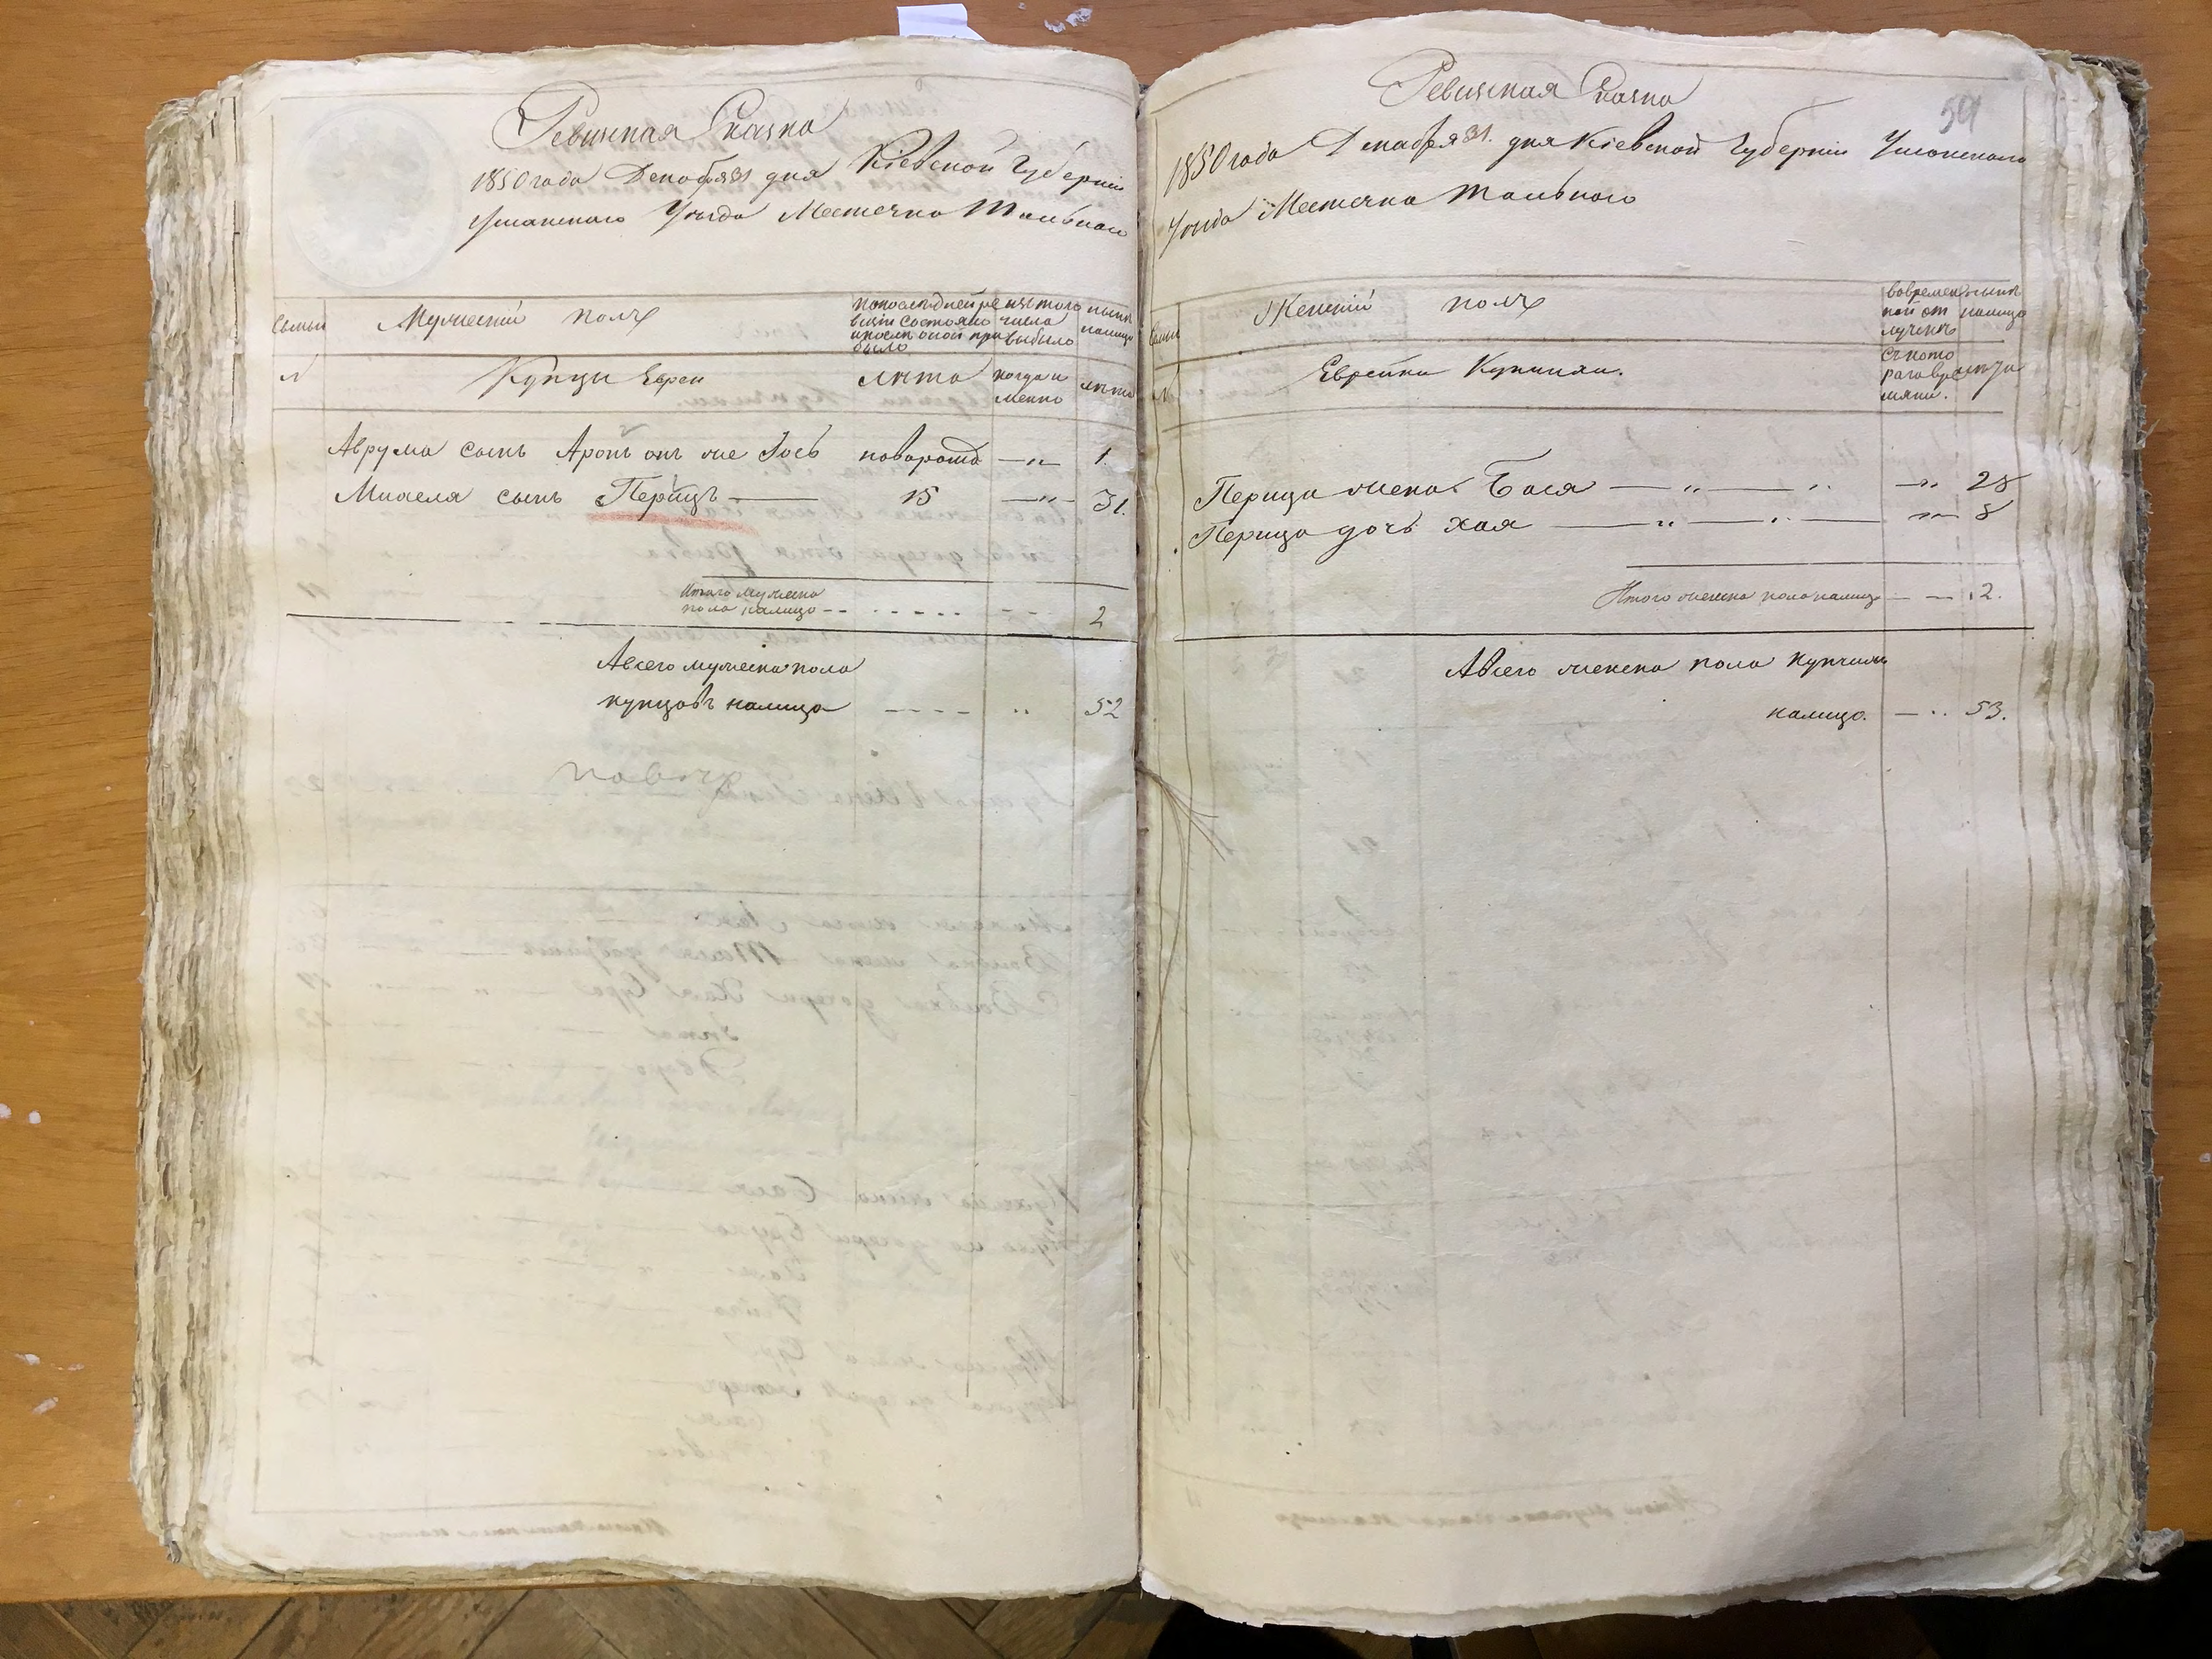 Ревизская Сказка
1850 года Декабря 31 дня Кіевской Губерніи
Уманскаго Уѣзда Местечка Тального
Семьи
Мужескій полъ
по последней ре
визіи состояло
и после оной при
было
изъ того
числа
выбыло
ныне
налицо
№
Купцы Евреи
лѣта
когда и
менно
лѣта
Аврума сынъ Аронъ онъ же Іось новорожд — „ — 1.
Михеля сынъ Перецъ — 15 — „ — 31.
Итого мужеска
пола налицо — — 2
А всего мужеска пола
купцовъ налицо — — — — „ 52
Ревизская Сказка
59
1850 года Декабря 31. дня Кіевской Губерніи Уманскаго
Уѣзда Местечка Тального
Семьи
Женскій полъ
во времен
ной от
лучкѣ
ныне
налицо
№
Еврейки Купчихи.
съ кото
раго вре
мяни.
лѣта
Перица жена Бася — „ — „ — „ 28
Перица дочь Хая — „ — „ — „ 8
Итого женска пола налицо — — 2.
А всего женска пола купчихъ
налицо. — „ 53.